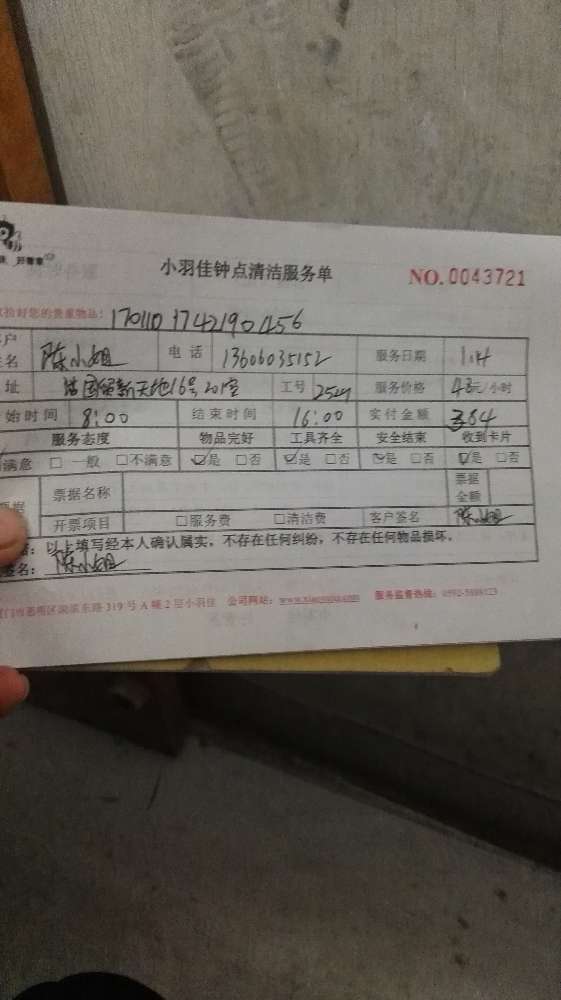 小羽佳钟点清洁服务单 NO.0043721
好您的贵重物品: 1701101742190456
名 陈小姐 电话 13606035152 服务日期 1.14
址 国贸新天地16号201室 工号 服务价格 48元/小时
始时间 8:00 结束时间 16:00 实付金额 384
服务态度 物品完好 工具齐全 安全结束 收到卡片
满意 □一般 □不满意 ☑是 □否 ☑是 □否 ☑是 □否 ☑是 □否
票据名称 票据金额
开票项目 □服务费 □清洁费 客户签名 陈小姐
以上填写经本人确认属实，不存在任何纠纷，不存在任何物品损坏。
签名: 陈小姐
门市思明区 东路319号A幢2层小羽佳 公司网站: 服务监督热线: